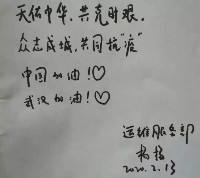 天佑中华，共克时艰。
众志成城，共同抗“疫”
中国加油！♡
武汉加油！♡
运维服务部
杨
2020.2.13